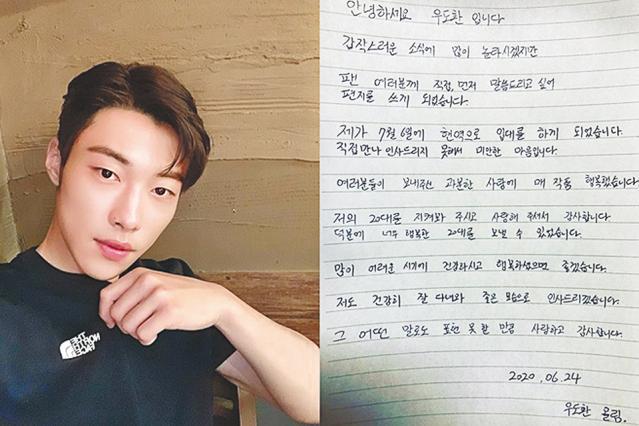 THE
NORTH
FACE
안녕하세요 우도환 입니다
갑작스러운 소식에 많이 놀라시겠지만
팬 여러분께 직접, 먼저 말씀드리고 싶어
편지를 쓰게 되었습니다.
제가 7월 6일에 현역으로 입대를 하게 되었습니다.
직접 만나 인사드리지 못해서 미안한 마음입니다.
여러분들이 보내주신 과분한 사랑에 매 작품 행복했습니다.
저의 20대를 지켜봐 주시고 사랑해 주셔서 감사합니다
덕분에 너무 행복한 20대를 보낼 수 있었습니다.
많이 어려운 시기에 건강하시고 행복하셨으면 좋겠습니다.
저도 건강히 잘 다녀와 좋은 모습으로 인사드리겠습니다.
그 어떤 말로도 표현 못 할 만큼 사랑하고 감사합니다.
2020. 06. 24
우도환 올림.